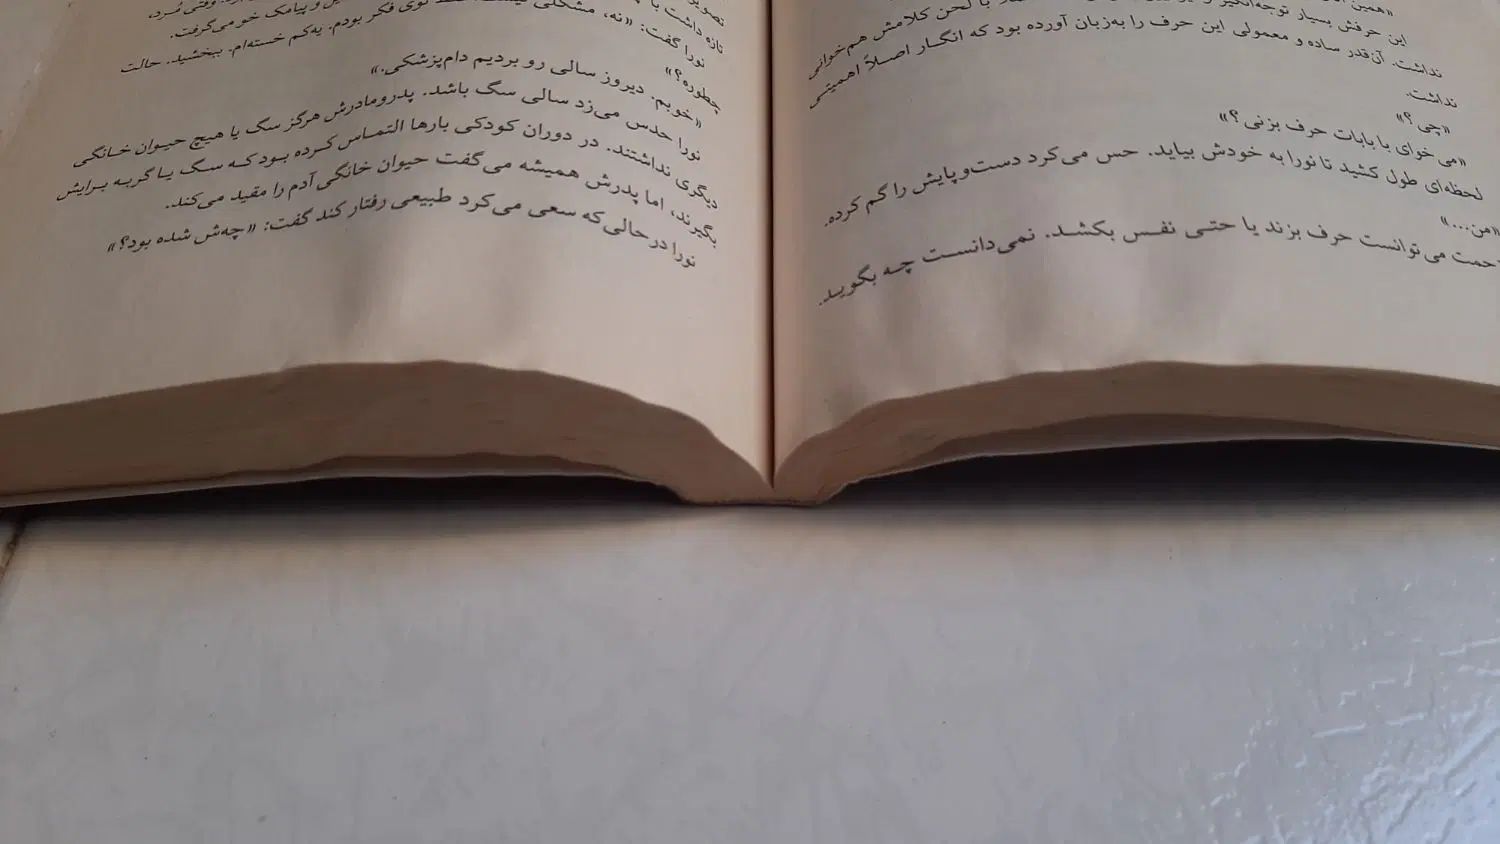 «همین
این حرفش بسیار توجه‌انگیز و با لحن کلامش هم‌خوانی
نداشت. آن‌قدر ساده و معمولی این حرف را به‌زبان آورده بود که انگار اصلاً اهمیتی
نداشت.
«چی؟»
«می‌خوای با بابات حرف بزنی؟»
لحظه‌ای طول کشید تا نورا به خودش بیاید. حس می‌کرد دست‌وپایش را گم کرده.
«من...»
حمت می‌توانست حرف بزند یا حتی نفس بکشد. نمی‌دانست چه بگوید.
تصویر
تازه داشت با و پیامک خو می‌گرفت.
نورا گفت: «نه، مشکلی توی فکر بودم. یه‌کم خسته‌ام. ببخشید. حالت
چطوره؟»
«خوبم. دیروز سالی رو بردیم دام‌پزشکی.»
نورا حدس می‌زد سالی سگ باشد. پدرومادرش هرگز سگ یا هیچ حیوان خانگی
دیگری نداشتند. در دوران کودکی بارها التماس کرده بود که سگ یا گربه برایش
بگیرند، اما پدرش همیشه می‌گفت حیوان خانگی آدم را مقید می‌کند.
نورا در حالی‌که سعی می‌کرد طبیعی رفتار کند گفت: «چه‌ش شده بود؟»